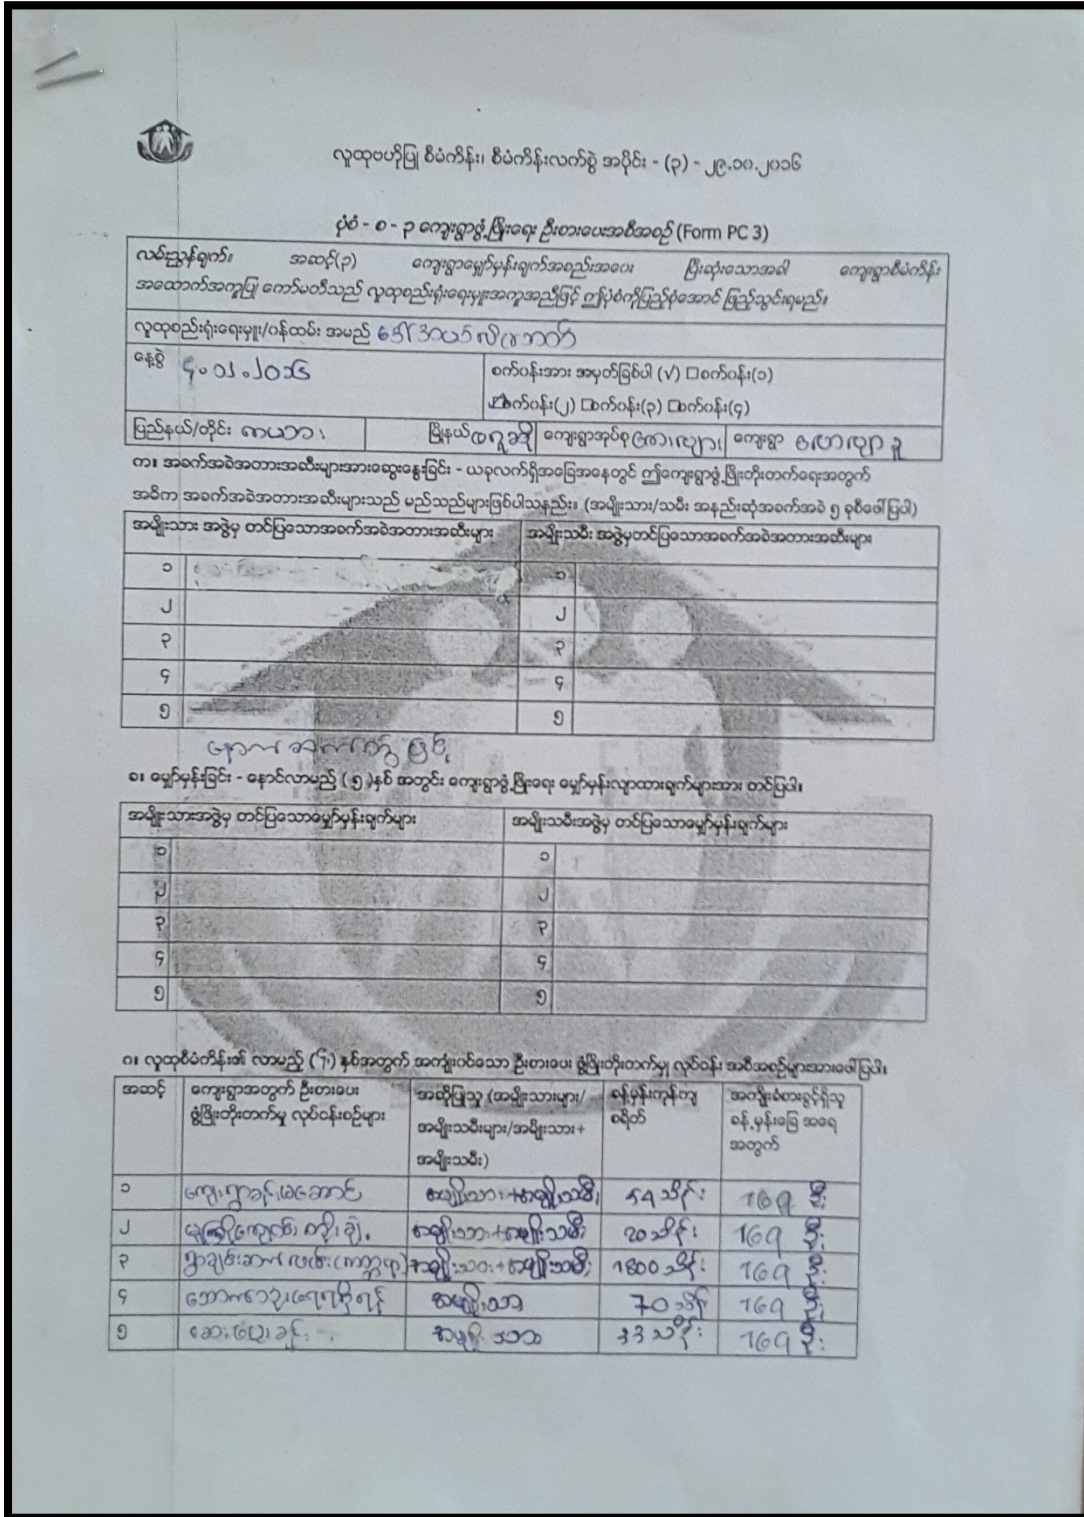 လူထုဗဟိုပြု စီမံကိန်း၊ စီမံကိန်းလက်စွဲ အပိုင်း - (၃) - ၂၉.၁၀.၂၀၁၆
ပုံစံ - စ - ၃ ကျေးရွာဖွံ့ဖြိုးရေး ဦးစားပေးအစီအစဉ် (Form PC 3)
လမ်းညွှန်ချက်။ အဆင့်(၃) ကျေးရွာမျှော်မှန်းချက်အစည်းအဝေး ပြီးဆုံးသောအခါ ကျေးရွာစီမံကိန်း
အထောက်အကူပြု ကော်မတီသည် လူထုစည်းရုံးရေးမှူးအကူအညီဖြင့် ဤပုံစံကိုပြည့်စုံအောင် ဖြည့်သွင်းရမည်။
လူထုစည်းရုံးရေးမှူး/ဝန်ထမ်း အမည် ဒေါ်အယ်လိဇဘက်
နေ့စွဲ စက်ဝန်းအား အမှတ်ခြစ်ပါ (√) □စက်ဝန်း(၁)
စက်ဝန်း(၂) □စက်ဝန်း(၃) □စက်ဝန်း(၄)
ပြည်နယ်/တိုင်း ကယား မြို့နယ် ဖရူဆို ကျေးရွာအုပ်စု ကျေးရွာ
က။ အခက်အခဲအတားအဆီးများအားဆွေးနွေးခြင်း - ယခုလက်ရှိအခြေအနေတွင် ဤကျေးရွာဖွံ့ဖြိုးတိုးတက်ရေးအတွက်
အဓိက အခက်အခဲအတားအဆီးများသည် မည်သည်များဖြစ်ပါသနည်း။ (အမျိုးသား/သမီး အနည်းဆုံးအခက်အခဲ ၅ ခုစီဖေါ်ပြပါ)
အမျိုးသား အဖွဲ့မှ တင်ပြသောအခက်အခဲအတားအဆီးများ အမျိုးသမီး အဖွဲ့မှတင်ပြသောအခက်အခဲအတားအဆီးများ
၁ ၁
၂ ၂
၃ ၃
၄ ၄
၅ ၅
နောက်ဆက်တွဲဖြင့်
ခ။ မျှော်မှန်းခြင်း - နောင်လာမည့် (၅)နှစ် အတွင်း ကျေးရွာဖွံ့ဖြိုးရေး မျှော်မှန်းလျာထားချက်များအား တင်ပြပါ။
အမျိုးသားအဖွဲ့မှ တင်ပြသောမျှော်မှန်းချက်များ အမျိုးသမီးအဖွဲ့မှ တင်ပြသောမျှော်မှန်းချက်များ
၁ ၁
၂ ၂
၃ ၃
၄ ၄
၅ ၅
ဂ။ လူထုစီမံကိန်း၏ လာမည့် (၄) နှစ်အတွက် အကျုံးဝင်သော ဦးစားပေး ဖွံ့ဖြိုးတိုးတက်မှု လုပ်ငန်း အစီအစဉ်များအားဖေါ်ပြပါ။
အဆင့် ကျေးရွာအတွက် ဦးစားပေး အဆိုပြုသူ (အမျိုးသားများ/ ခန့်မှန်းကုန်ကျ အကျိုးခံစားခွင့်ရှိသူ
ဖွံ့ဖြိုးတိုးတက်မှု လုပ်ငန်းစဉ်များ အမျိုးသမီးများ/အမျိုးသား+ စရိတ် ခန့်မှန်းခြေ အရေ
အမျိုးသမီး) အတွက်
၁ ကျေးရွာခန်းမဆောင် အမျိုးသား+အမျိုးသမီး 54 သိန်း 169 ဦး
၂ မူကြိုကျောင်း တိုးချဲ့ အမျိုးသား+အမျိုးသမီး 20 သိန်း 169 ဦး
၃ ရွာချင်းဆက်လမ်း (ကတ္တရာ) အမျိုးသား+အမျိုးသမီး 1800 သိန်း 169 ဦး
၄ သောက်သုံးရေရရှိရန် အမျိုးသား 70 သိန်း 169 ဦး
၅ ဆေးပေးခန်း အမျိုးသား 33 သိန်း 169 ဦး